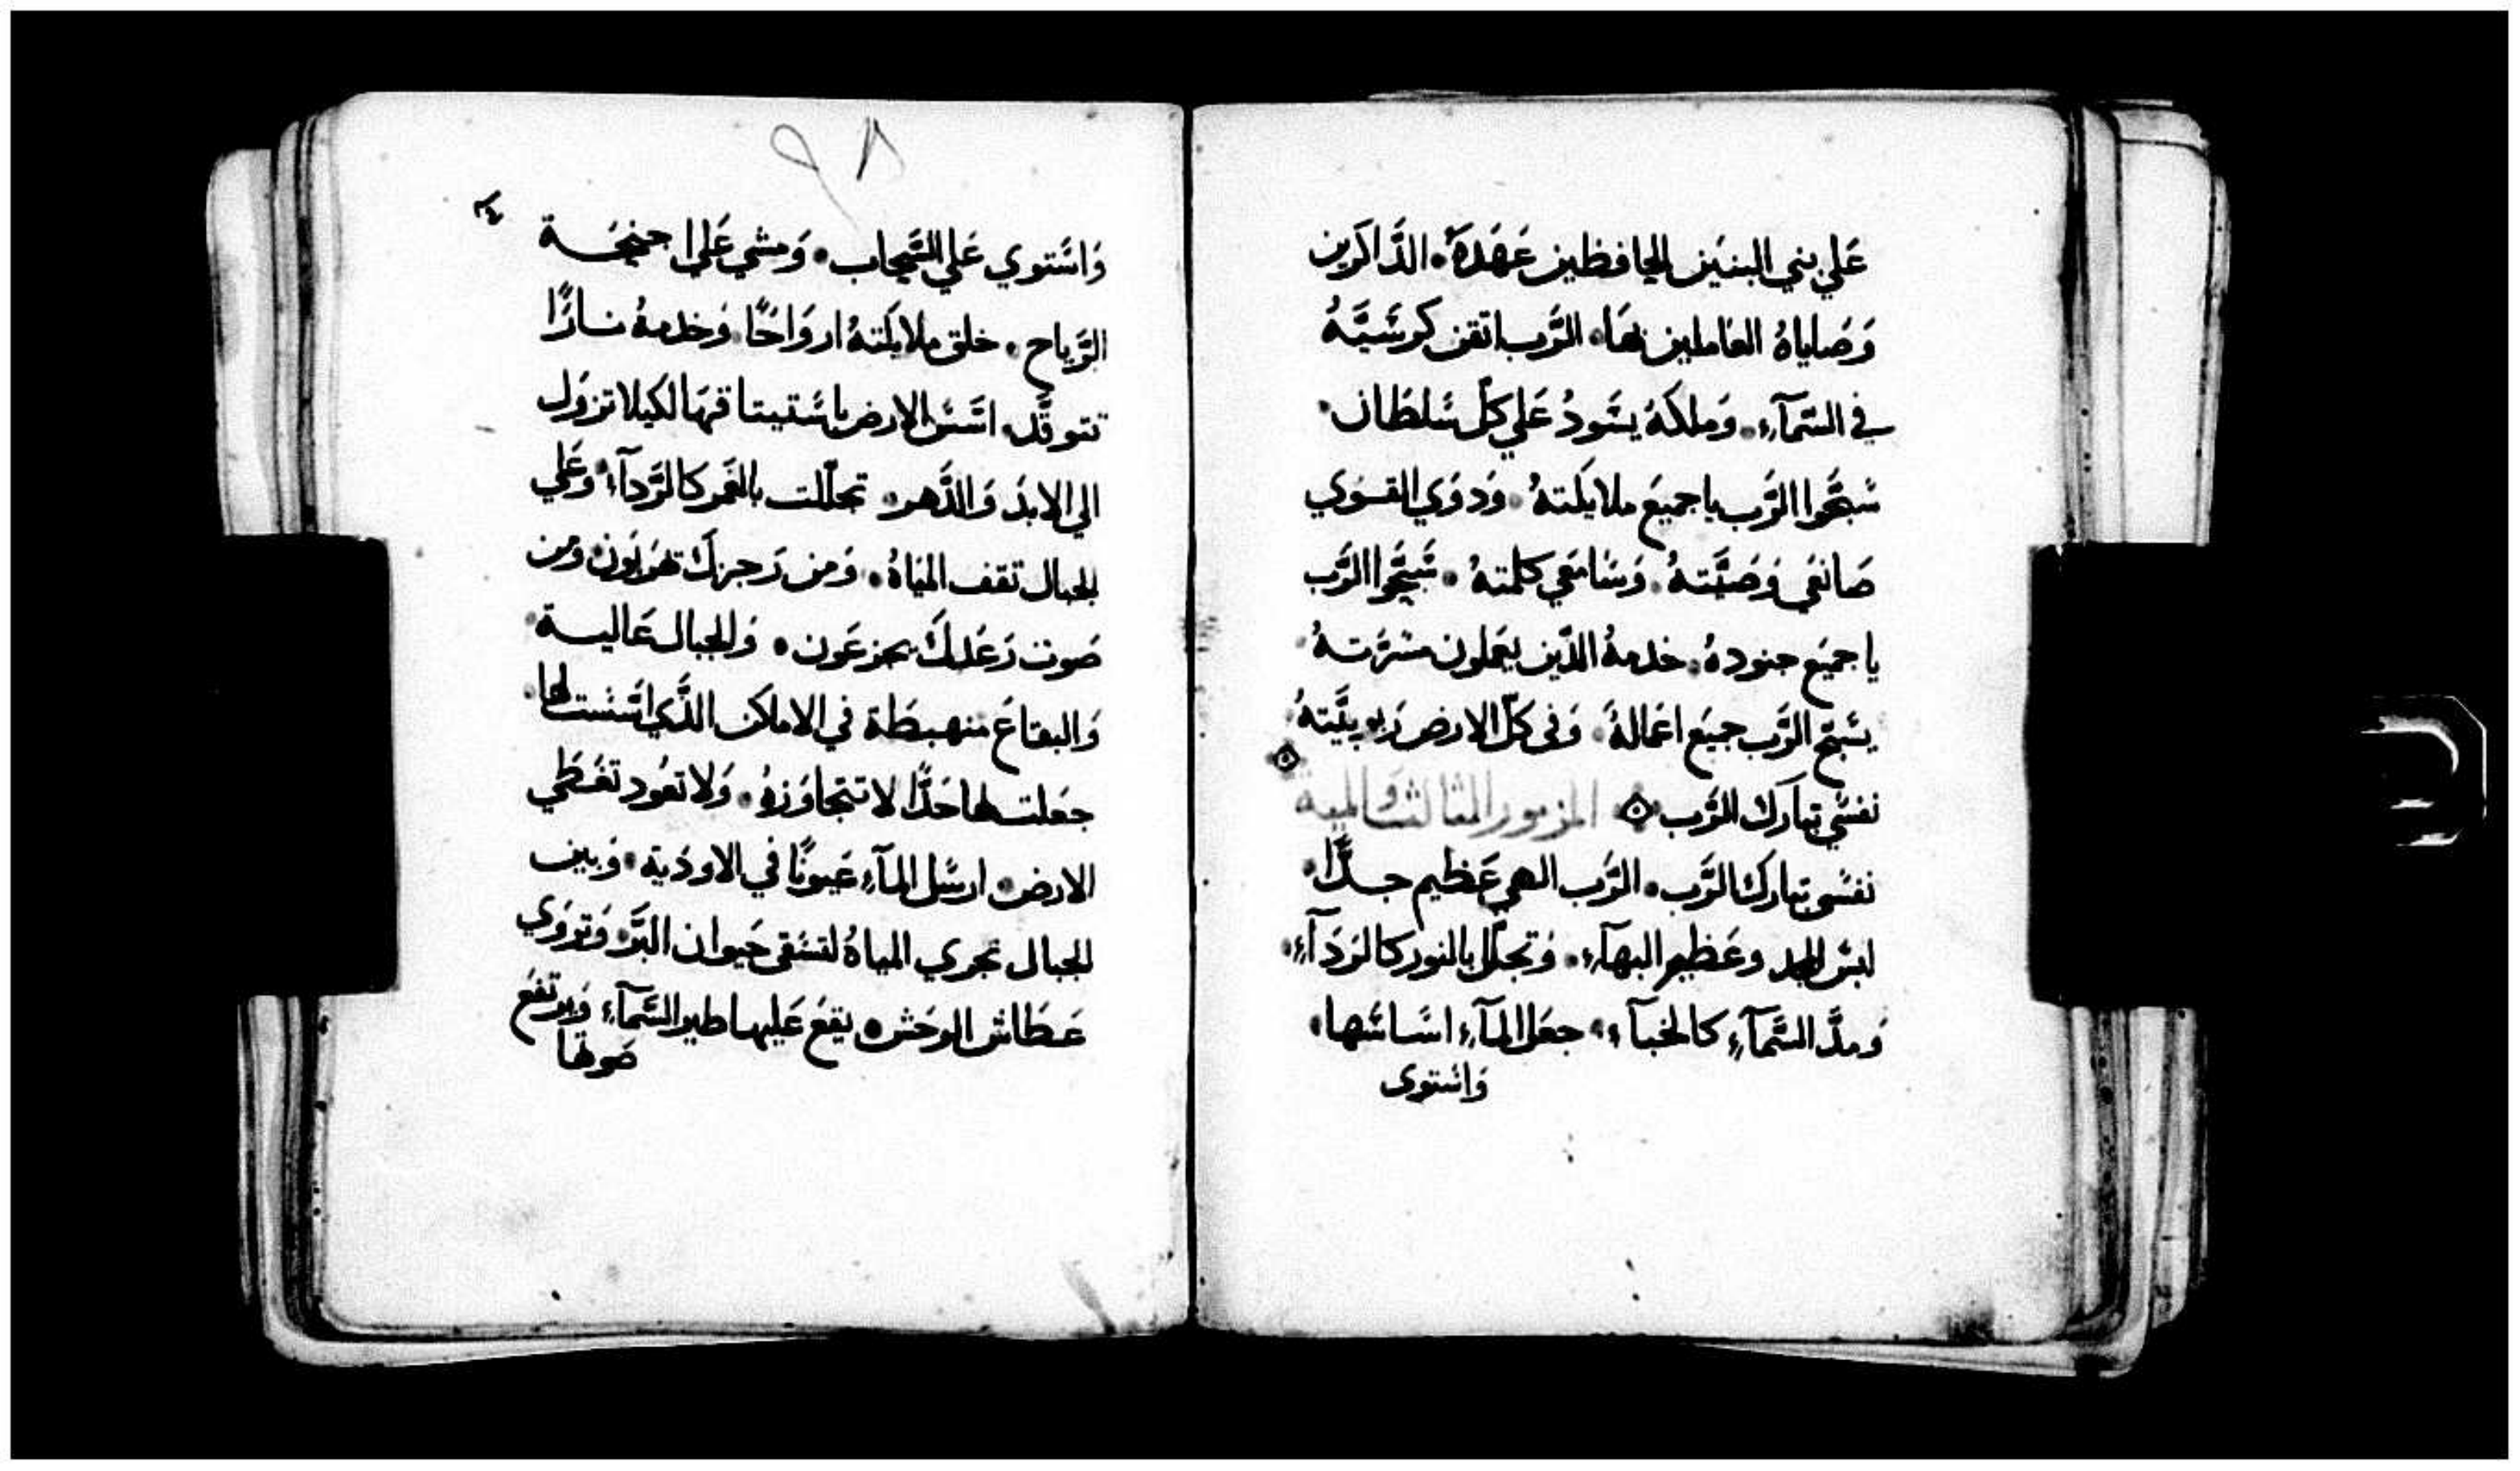 عَلي بني البنين الحافظين عَهَدهُ. الذَّاكرين
وَصَاياهُ العَاملين بهَا. الرَّب اتقن كرسَيَّهُ
في السَّمَآءِ. وَملكهُ يسَودُ عَلي كلّ سُلطَان.
سَبّحُوا الرَّب يا جميعَ ملايكتهُ. وَدوَي القوي
صَانعَي وَصَيَّتهُ. وَسَامعَي كلمتهُ. سَبّحُوا الرَّب
يا جميَع جنودهُ. خدمهُ الذَّين يعَملون مسَرَّتهُ.
يسَبّح الرَّب جميَع اعَمالهُ. وَفي كلّ الارض رَبوبيَّتهُ
نفسَي تبارك الرَّب. المزمور الثالث والمية
نفسَي تبارك الرَّب. الرَّب الهي عَظيم جدًّا.
لبسَ المجد وعَظيم البهآءِ. وَتجلّل بالنور كالردَآءِ.
وَمدَّ السَّمَآءِ كالخبآءِ. جعَل المآءِ اسَاسَها.
وَاستوى
٩٨
وَاسَتوي عَلي السَّحاب. وَمشي عَلي اجنحَة
الرّيَاح. خلق ملايكتهُ اروَاحًا. وَخدمهُ نارًا
تتوقَّد. اسَّسَ الارض باسَتيتاقهَا لكيلا تزوَل
الي الابدَ وَالدَّهر. تجلّلت بالغَمر كالرَّدآءِ. وَعَلي
الجبال تقف الميَاهُ. وَمن زَجرك تهرَبون وَمن
صَوت رَعَدكَ يجزعَون. وَالجبال عَالية
وَالبقاعَ منهبطَة في الاماكن الذَّي اسَّسَت لها.
جعَلت لها حَدًّا لا تتجَاوَزهُ. وَلا تعَود تغَطَي
الارض. ارسَل المآءِ عَيونًا في الاودَية. وَبين
الجبال تجري المياهُ لتسَقي حَيوان البَرّ. وَتروَي
عَطَاش الوحَش. يقعَ عَليها طير السَّمَآءِ وَيرتفعَ
صَوتها